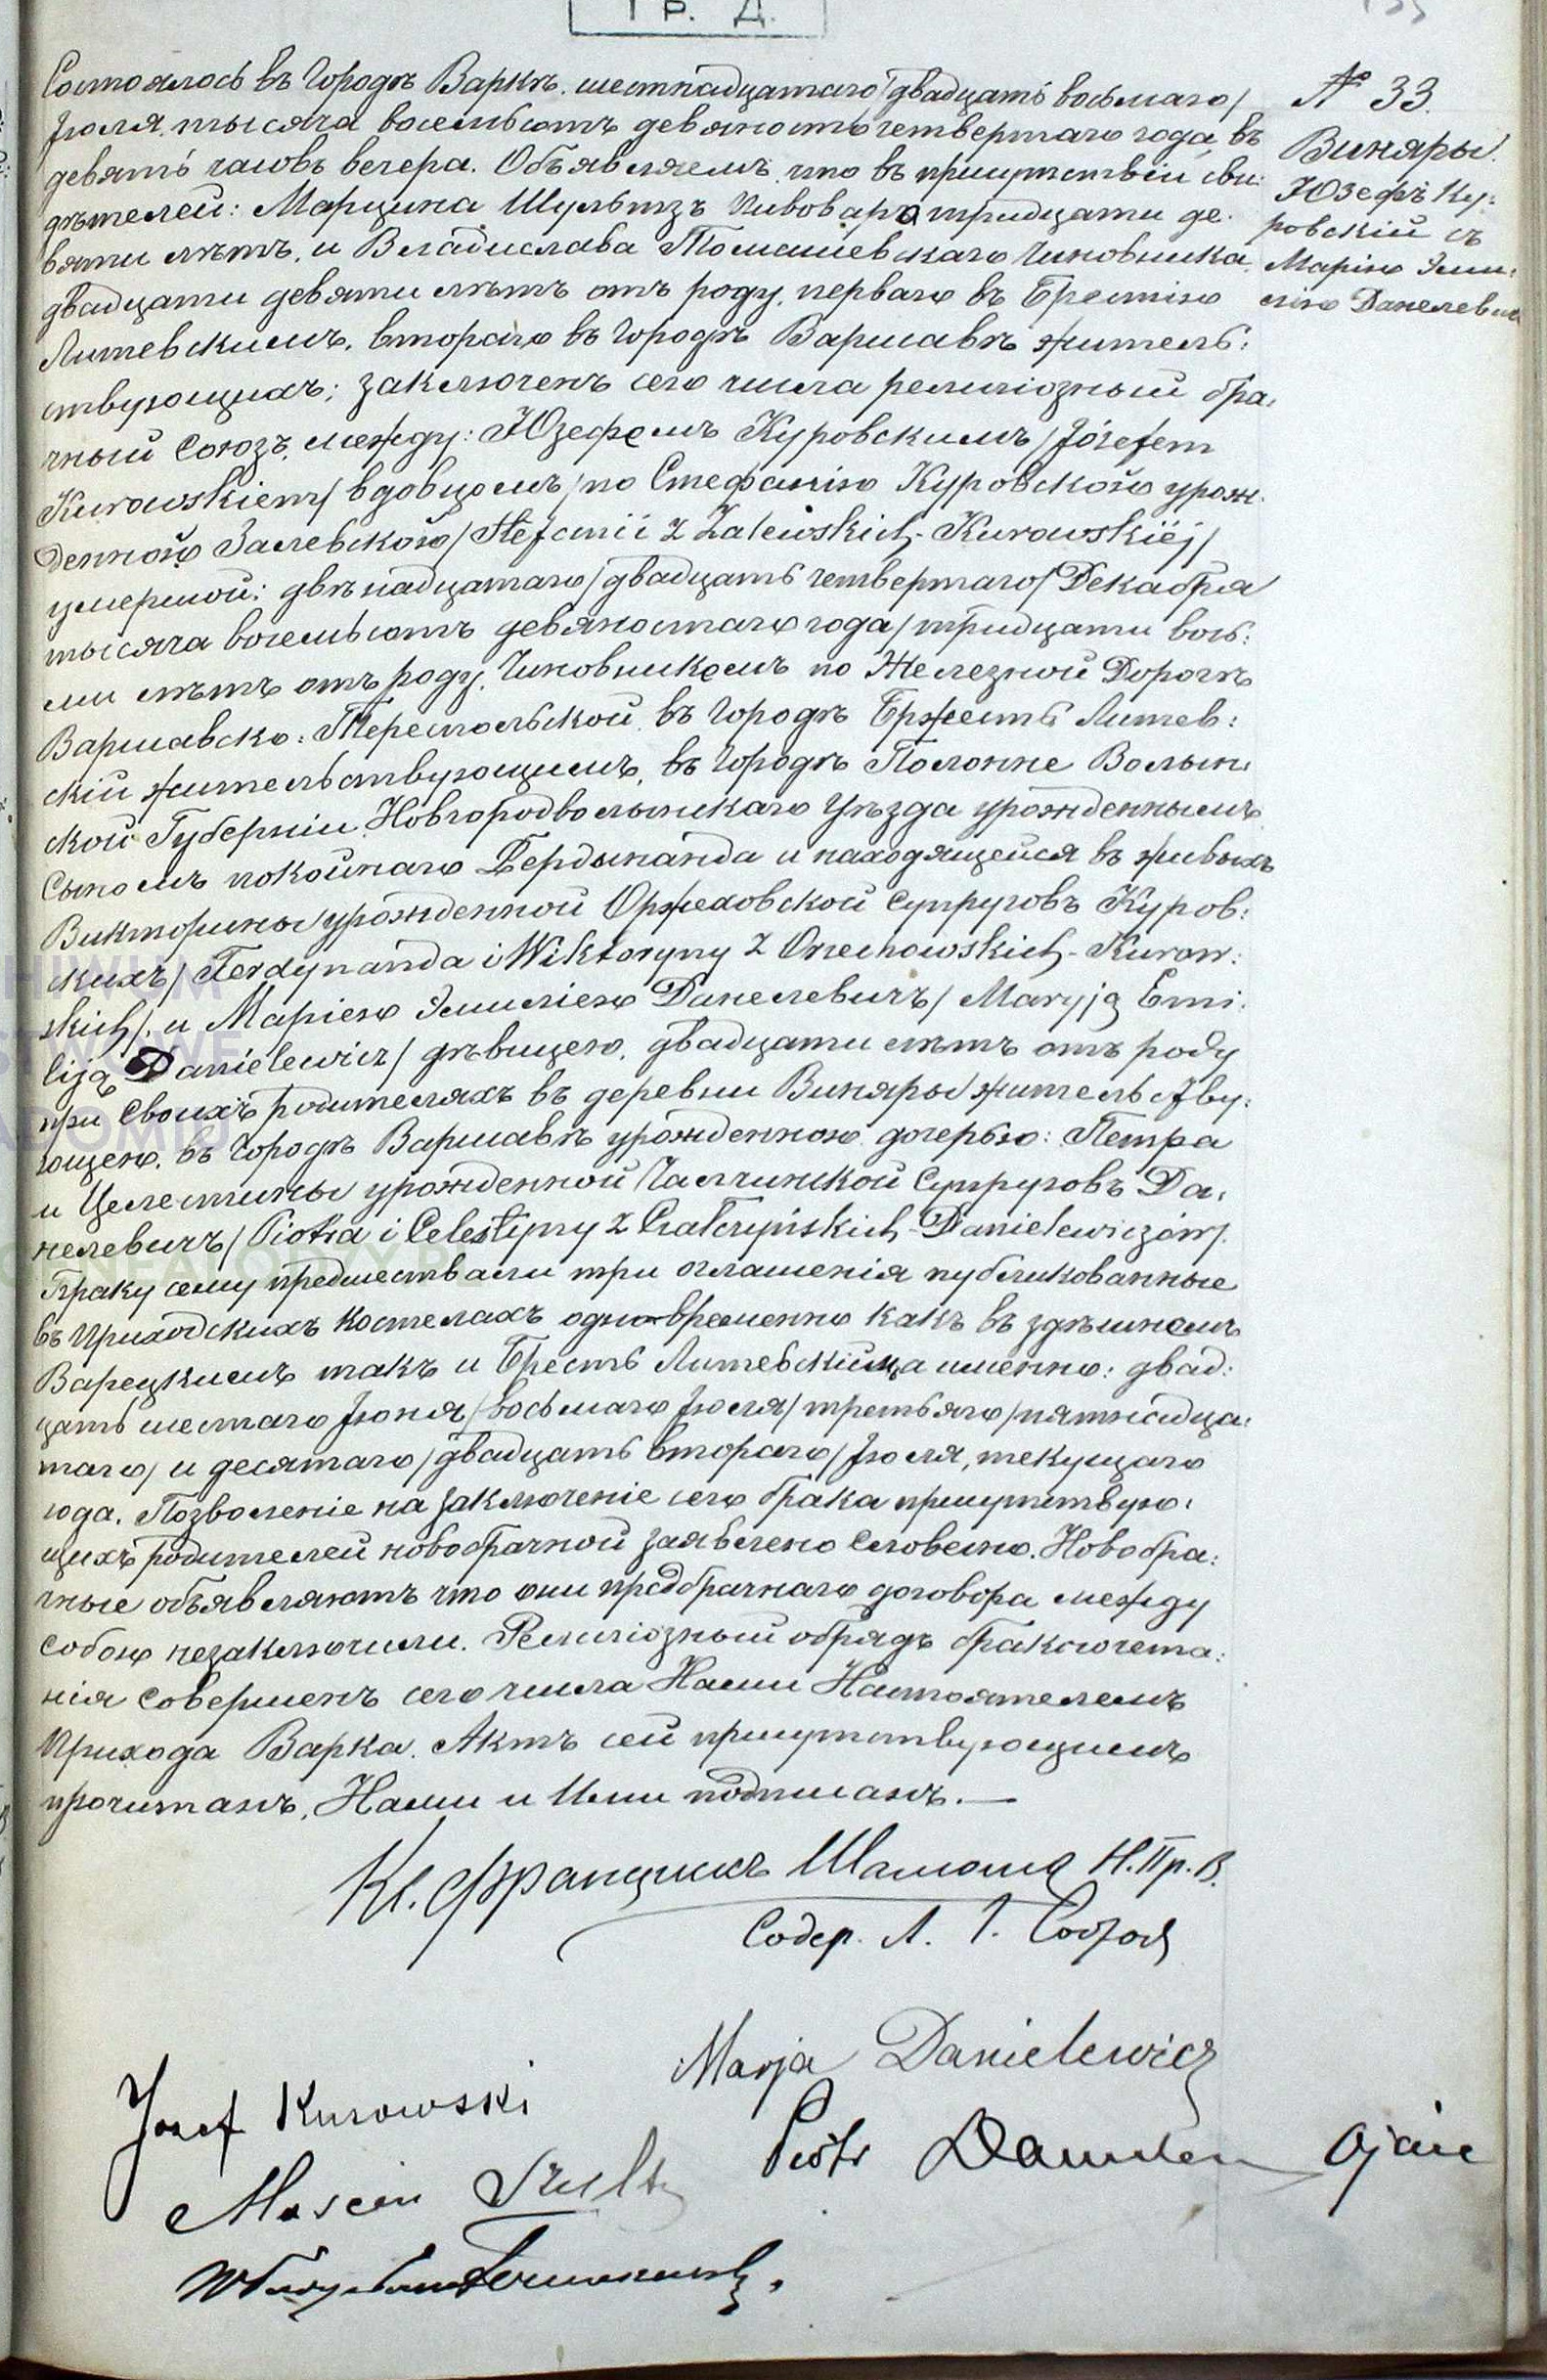 Гр. Д.
№ 33.
Виняры.
Юзефъ Ку:
ровскій съ
Марію Эми:
лію Данелевичъ
Состоялось въ городѣ Варкѣ. шестнадцатаго /двадцать восьмаго/
Іюля, тысяча восемьсотъ девяносто четвертаго года, въ
девять часовъ вечера. Объявляемъ, что въ присутствіи сви:
дѣтелей: Марцина Шультзъ Пивовара тридцати де:
вяти лѣтъ, и Владислава Томашевскаго Чиновника
двадцати девяти лѣтъ отъ роду, перваго въ Брестію
Литевскимъ, втораго въ городѣ Варшавѣ житель:
ствующихъ; заключенъ сего числа религіозный бра:
чный Союзъ, между: Юзефомъ Куровскимъ /Józefem
Kurowskiem/ вдовцомъ /по Стефанію Куровской урож:
денной Залевской /Stefanii z Zalewskich - Kurowskiéj/
умершой: двѣнадцатаго /двадцать четвертаго/ Декабря
тысяча восемьсотъ девяностаго года/ тридцати вось:
ми лѣтъ отъ роду, Чиновникомъ по Железной Дорогѣ
Варшавско-Тереспольской, въ городѣ Бржесть Литев:
скій жительствующимъ, въ городѣ Полонне Волын:
ской Губерніи Новгородволынскаго Уѣзда урожденнымъ
Сыномъ покойнаго Фердынанда и находящейся въ живыхъ
Викторины урожденной Оржеховской Супруговъ Куров:
скихъ/ Ferdynanda i Wiktoryny z Orzechowskich - Kurow:
skich/. и Маріею Эмиліею Данелевичъ/ Maryją Emi:
liją Danielewicz/ дѣвицею, двадцати лѣтъ отъ роду
при своихъ родителяхъ въ деревни Виняры жительству:
ющею, въ городѣ Варшавѣ урожденною дочерью: Петра
и Целестины урожденной Халчинской Супруговъ Да:
нелевичъ/ Piotra i Celestyny z Chałczyńskich - Danielewiczów/.
Браку сему предшествали три оглашенія публикованные
въ приходскихъ костелахъ одновременно какъ въ здѣшнемъ
Варецкимъ такъ и Бресть Литевскій, а именно: двад:
цать шестаго Іюня /восьмаго Іюля/ третьяго /пятнадца:
таго/ и десятаго /двадцать втораго/ Іюля, текущаго
года. Позволеніе на заключеніе сего брака присутствую:
щихъ родителей новобрачной заявлено словесно. Новобра:
чные объявляютъ что они предбрачнаго договора между
собою незаключили. Религіозный обрядъ бракосочета:
нія совершенъ сего числа Нами Настоятелемъ
Прихода Варка. Актъ сей присутствующимъ
прочитанъ, Нами и Ими подписанъ. —
Кс. Францишкъ Шамота Н. Пр. В.
Содер. А. Г. Собр
Marja Danielewicz
Jozef Kurowski
Piotr Ojciec
Marcin Szultz